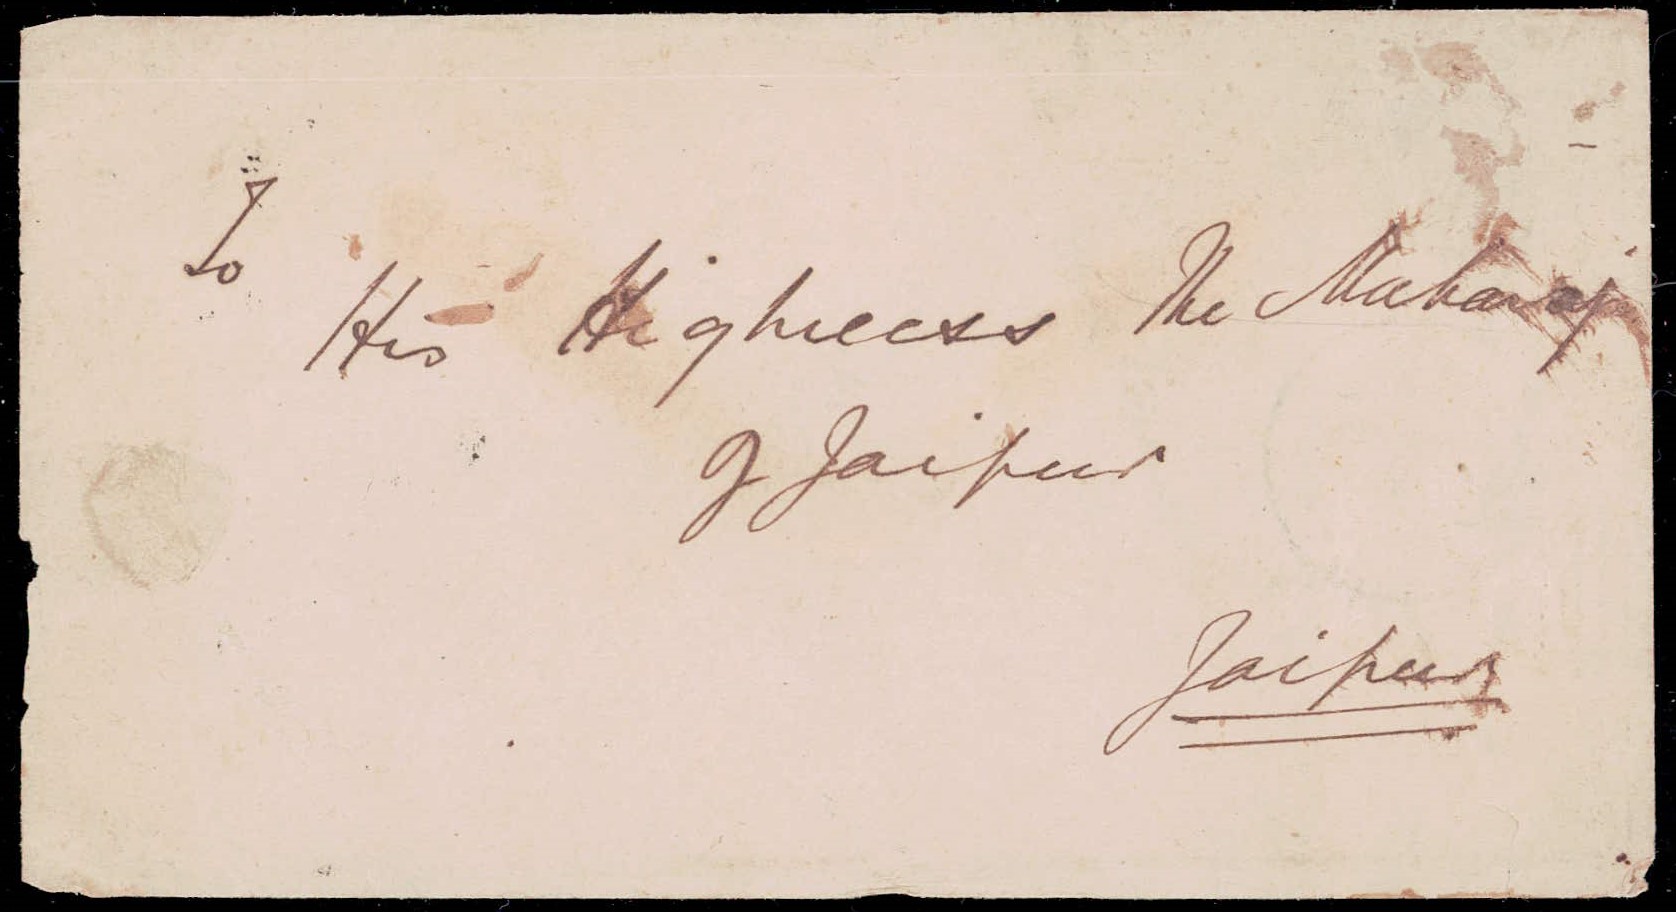 To
His Highness The Maharaj
of Jaipur
Jaipur